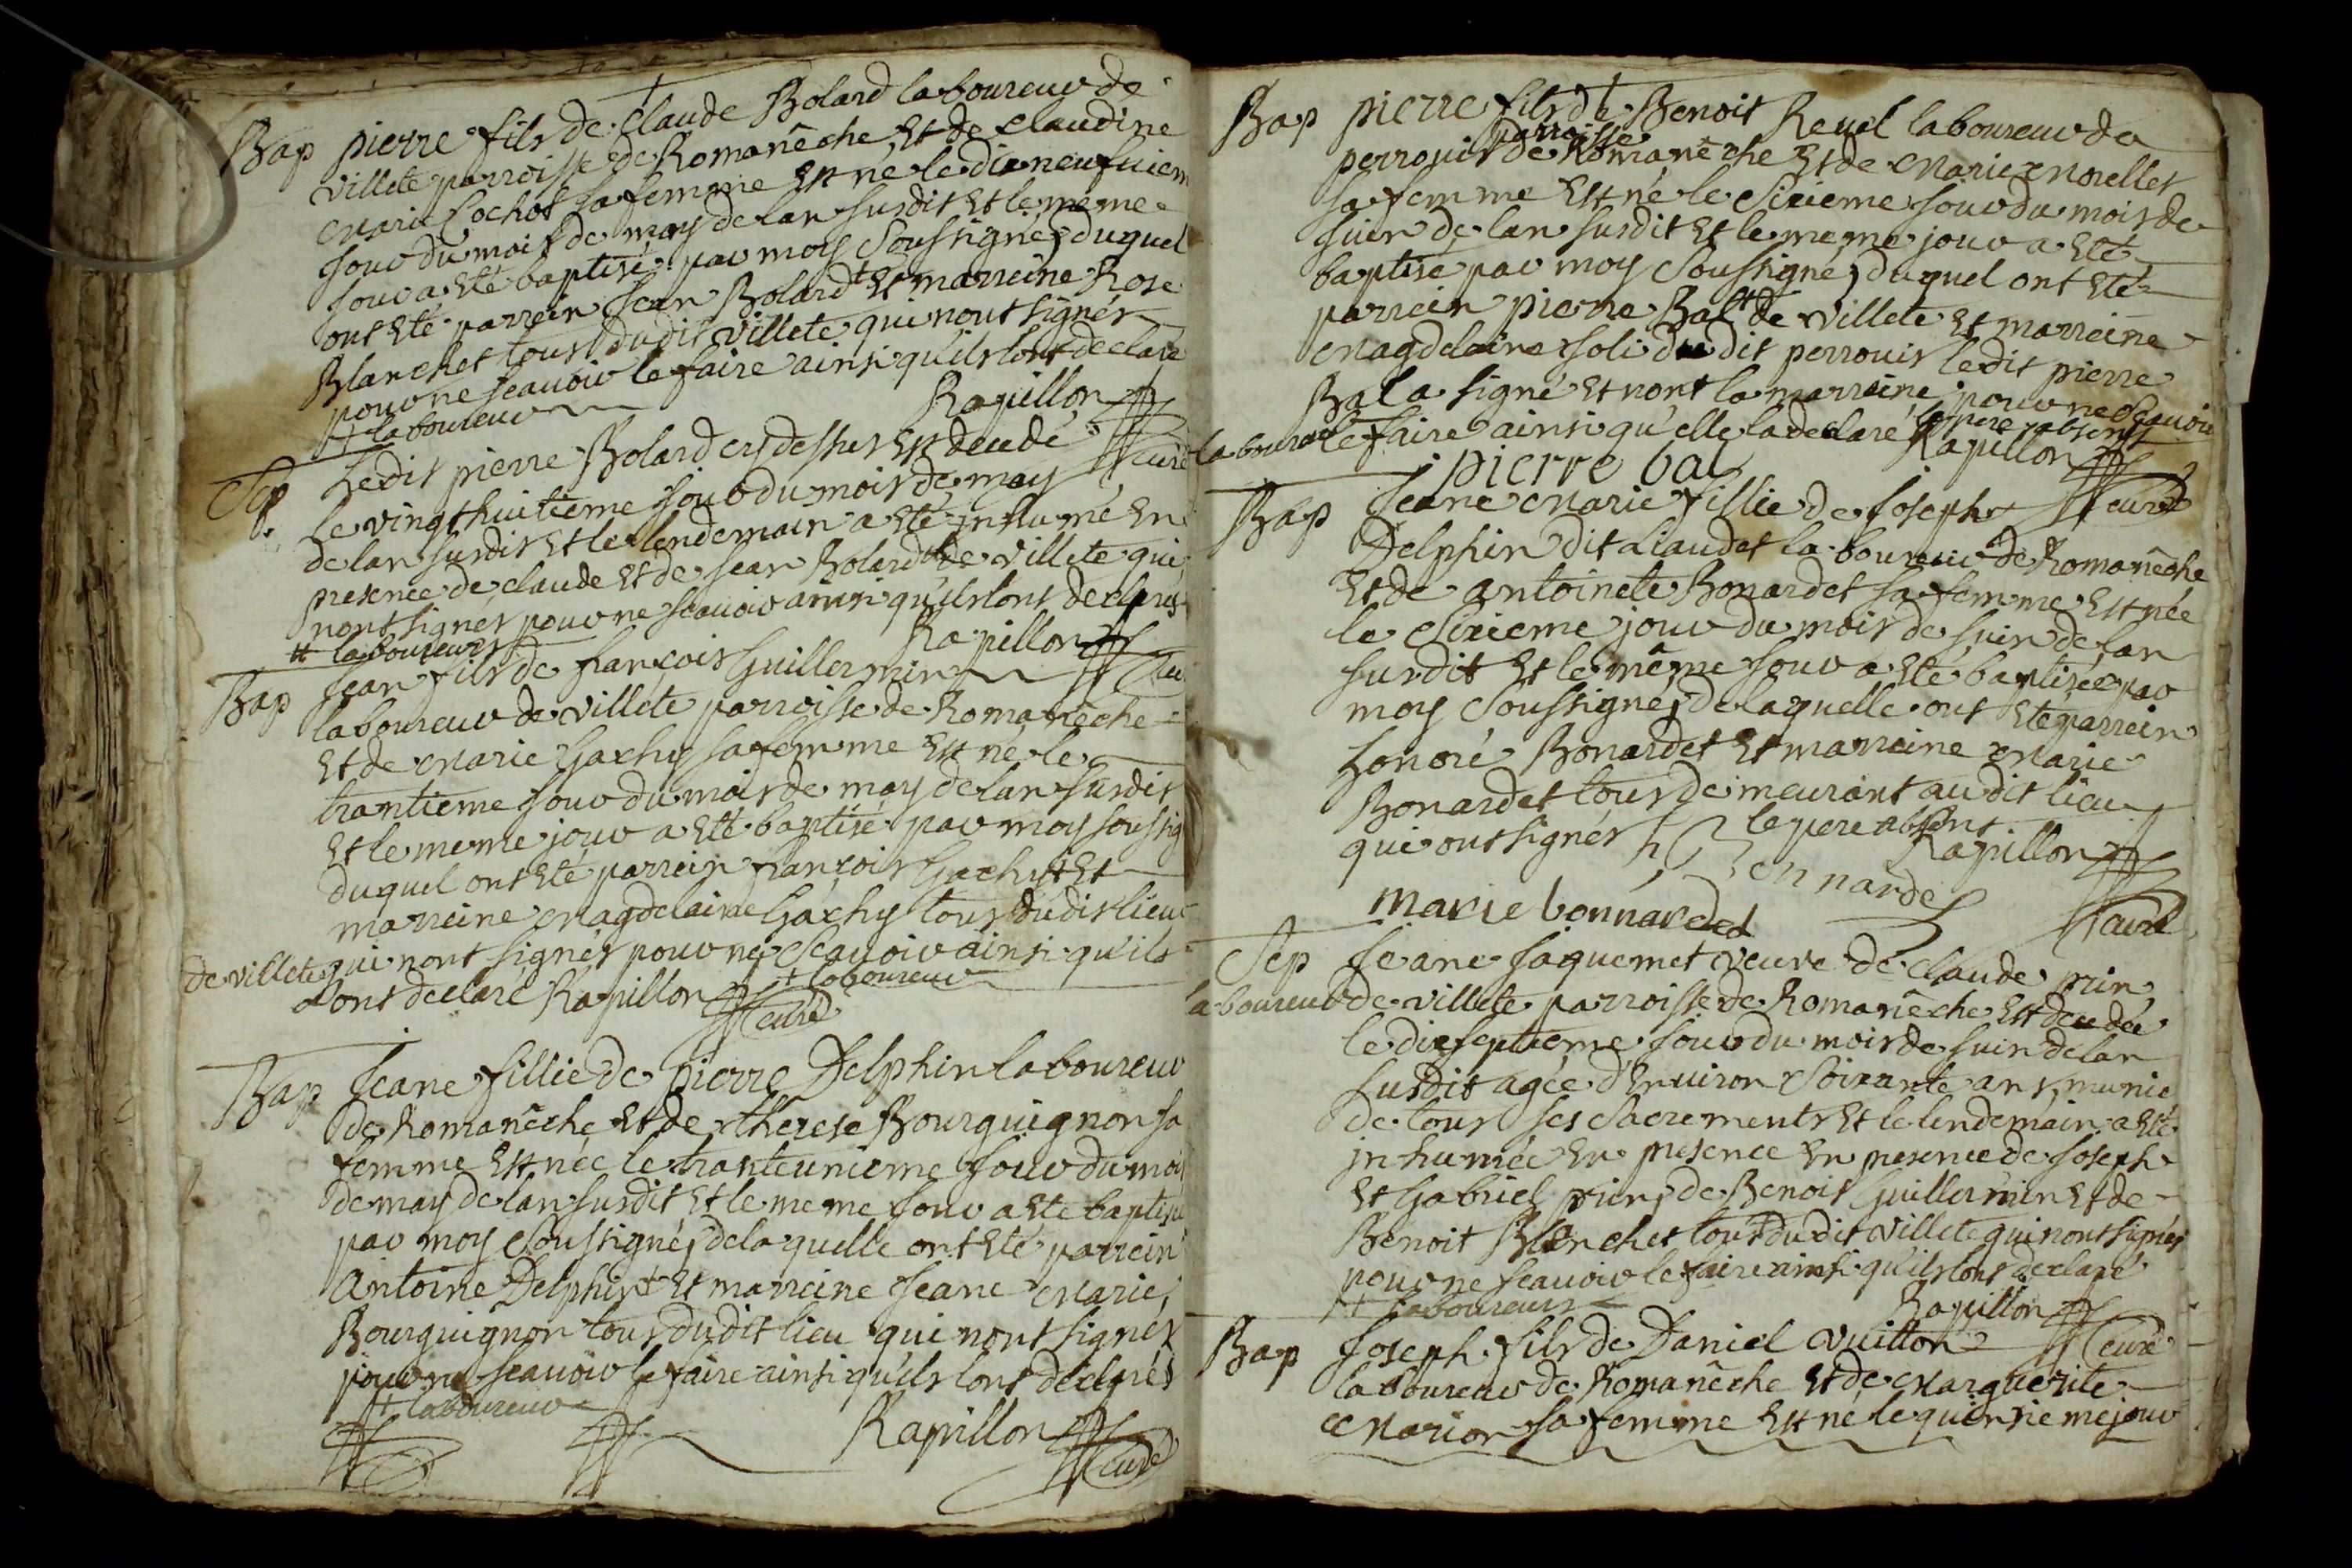 Bap pierre fils de claude Bolard laboureur de
villete parroisse de Romanêche Et de claudine
marie Cochet sa femme Est né le dixneufuiem
jour du mois de may de lan susdit Et le meme
jour a Eté baptisé par moy Soussigné, duquel
ont Eté parrein jean Bolard + Et marreine Rose
Blanchet tous dudit villete qui nont signés
pour ne sçauoir le faire ainsi quils lont declaré
+ laboureur Rapillon
curé
Sep. Ledit pierre Bolard cy dessus Est decudé
le vingt huitieme jour du mois de may
de lan susdit Et le lendemain a Eté inhumé En
presence de claude Et de jean Bolard # de villete qui
nont signés pour ne scauoir ainsi quils lont declarés
# laboureurs Rapillon
Bap jean fils de françois Guillermin
laboureur de villete parroisse de Romanêche
Et de marie Gachy sa femme Est né le
trantieme jour du mois de may de lan susdit
Et le meme jour a Eté baptisé par moy soussig
duquel ont Eté parrein françois Gachy + Et
marreine magdelaine Gachy tous dudit lieu
de villete qui nont signés pour ne Scauoir ainsi quils
lont declaré Rapillon + laboureur
curé
Bap jeane fillie de pierre Delphin laboureur
de Romanêche Et de therese Bourguignon sa
femme Est née le tranteunieme jour du mois
de may de lan susdit Et le meme jour a Eté baptisée
par moy Soussigné, de laquelle ont Eté parrein
antoine Delphin + Et marreine jeane marie
Bourguignon tous dudit lieu qui nont signés
pour ne scauoir le faire ainsi quils lont declarés
+ laboureur
Rapillon
curé
Bap pierre fils de Benoit Reuel laboureur de
parroisse
perrouis de Romanêche Et de marie morellet
sa femme Est né le Sixieme jour du mois de
juin de lan susdit Et le meme jour a Eté
baptisé par moy Soussigné, duquel ont Eté
parrein pierre Bal + de villete Et marreine
magdelaine joli dudit perrouis ledit pierre
Bal a signé Et nont la marreine pour ne Scauoir
laboureur le faire ainsi qu'elle la declaré le pere absent
pierre bal Rapillon
curé
Bap jeane marie fillie de joseph
Delphin dit Liaudet laboureur de Romanêche
Et de antoinete Bonardet sa femme Est née
le Sixieme jour du mois de juin de lan
susdit Et le même jour a Eté baptisée par
moy Soussigné, de laquelle ont Eté parrein
honoré Bonardet Et marreine marie
Bonardet tous demeurant audit lieu
qui ont signés le pere absent
Rapillon
marie bonnarded
curé
Sep jeane jaquemet veuve de claude prin
laboureur de villete parroisse de Romanêche Est decudée
le dixseptieme jour du mois de juin de lan
susdit agée d'Enuiron Soixante ans, munie
de tous ses Sacrements Et le lendemain a Eté
inhumée En presence En presence de joseph
Et Gabriel prin, de Benoit Guillermin Et de
Benoit Blanchet tous dudit villete qui nont signés
pour ne scauoir le faire ainsi quils lont declaré
+ laboureurs Rapillon
curé
Bap joseph fils de Daniel vuillon
laboureur de Romanêche Et de marguerite
marion sa femme Est né le quinsieme jour